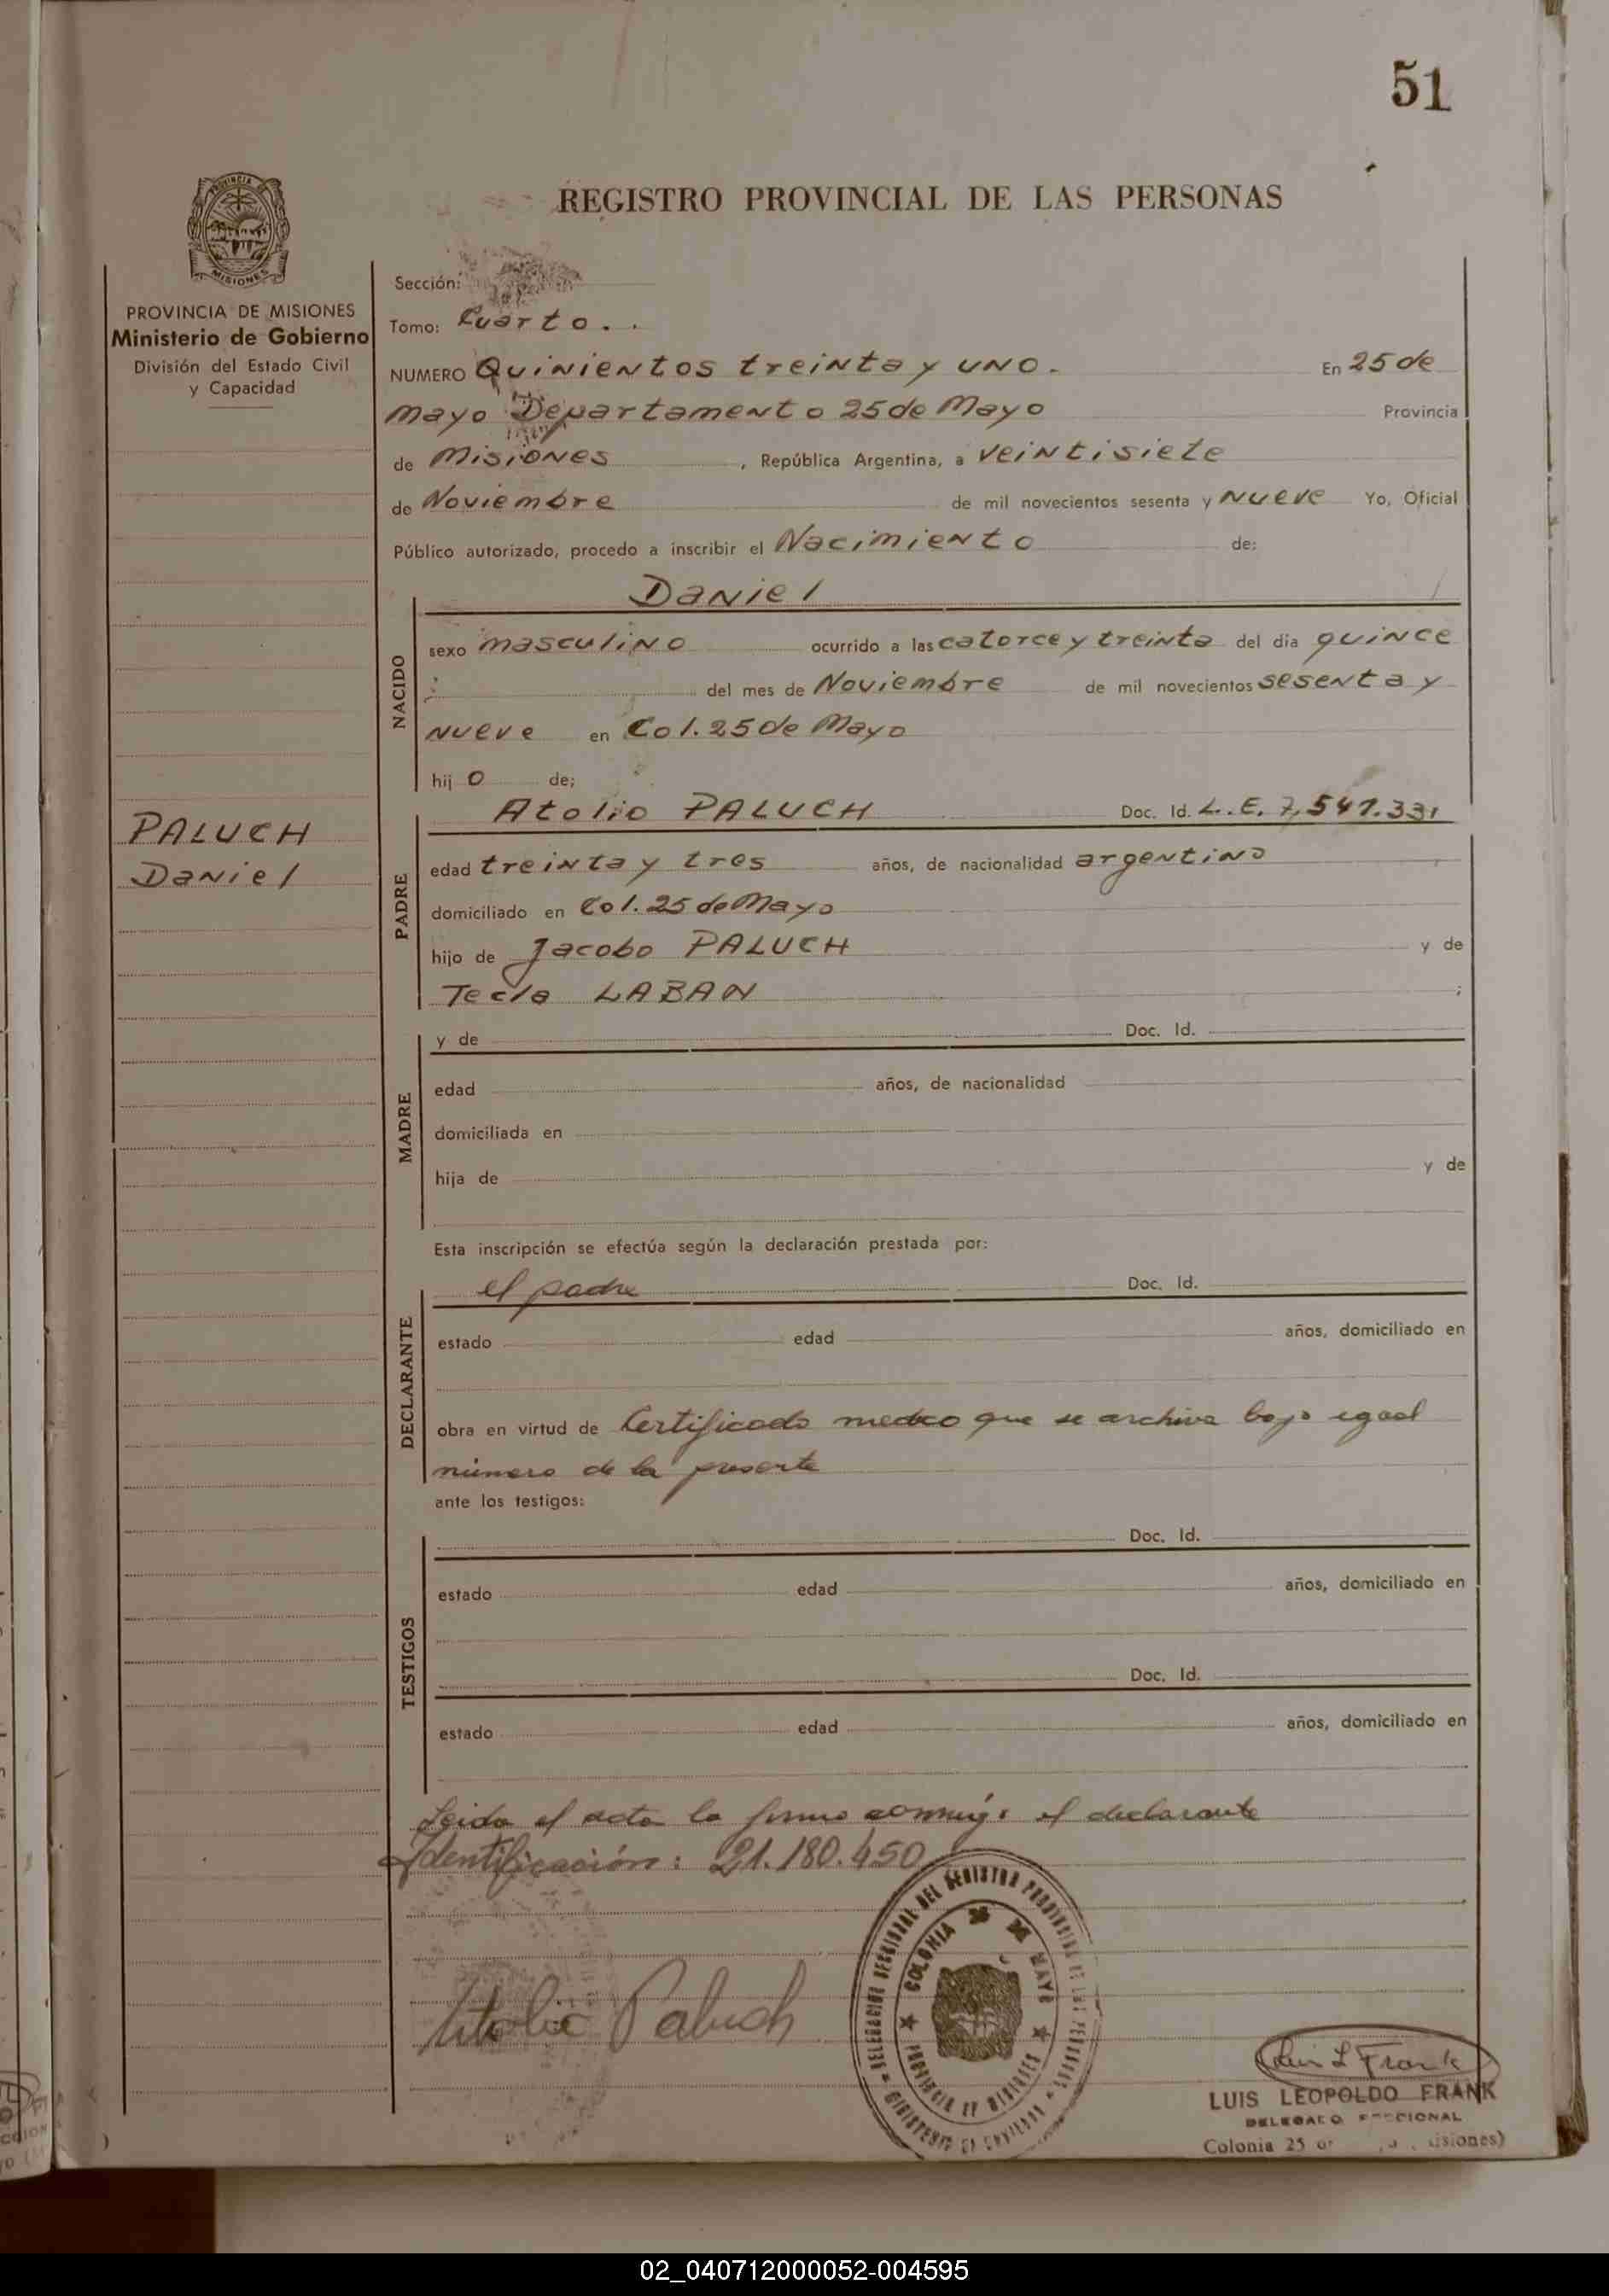 51
REGISTRO PROVINCIAL DE LAS PERSONAS
PROVINCIA DE MISIONES
Ministerio de Gobierno
División del Estado Civil
y Capacidad
Sección:
Tomo: Cuarto..
NUMERO Quinientos treinta y uno. En 25 de
Mayo Departamento 25 de Mayo Provincia
de Misiones, República Argentina, a veintisiete
de Noviembre de mil novecientos sesenta y nueve Yo, Oficial
Público autorizado, procedo a inscribir el Nacimiento de:
NACIDO
Daniel
sexo masculino ocurrido a las catorce y treinta del día quince
del mes de Noviembre de mil novecientos sesenta y
nueve en Col. 25 de Mayo
hijo de;
PALUCH
Daniel
PADRE
Atolio PALUCH Doc. Id. L.E. 7,541.331
edad treinta y tres años, de nacionalidad argentino
domiciliado en Col. 25 de Mayo
hijo de Jacobo PALUCH y de
Tecla LABAN ;
MADRE
y de Doc. Id.
edad años, de nacionalidad
domiciliada en
hija de y de
Esta inscripción se efectúa según la declaración prestada por:
DECLARANTE
el padre Doc. Id.
estado edad años, domiciliado en
obra en virtud de Certificado medico que se archiva bajo igual
número de la presente
ante los testigos:
TESTIGOS
Doc. Id.
estado edad años, domiciliado en
Doc. Id.
estado edad años, domiciliado en
Leida el acta la firma conmigo el declarante
Identificación: 21.180.450
DELEGACION SECCIONAL DEL REGISTRO PROVINCIAL DE LAS PERSONAS
COLONIA 25 DE MAYO
PROVINCIA DE MISIONES
Atolio Paluch
Luis L Frank
LUIS LEOPOLDO FRANK
DELEGADO SECCIONAL
Colonia 25
02_040712000052-004595